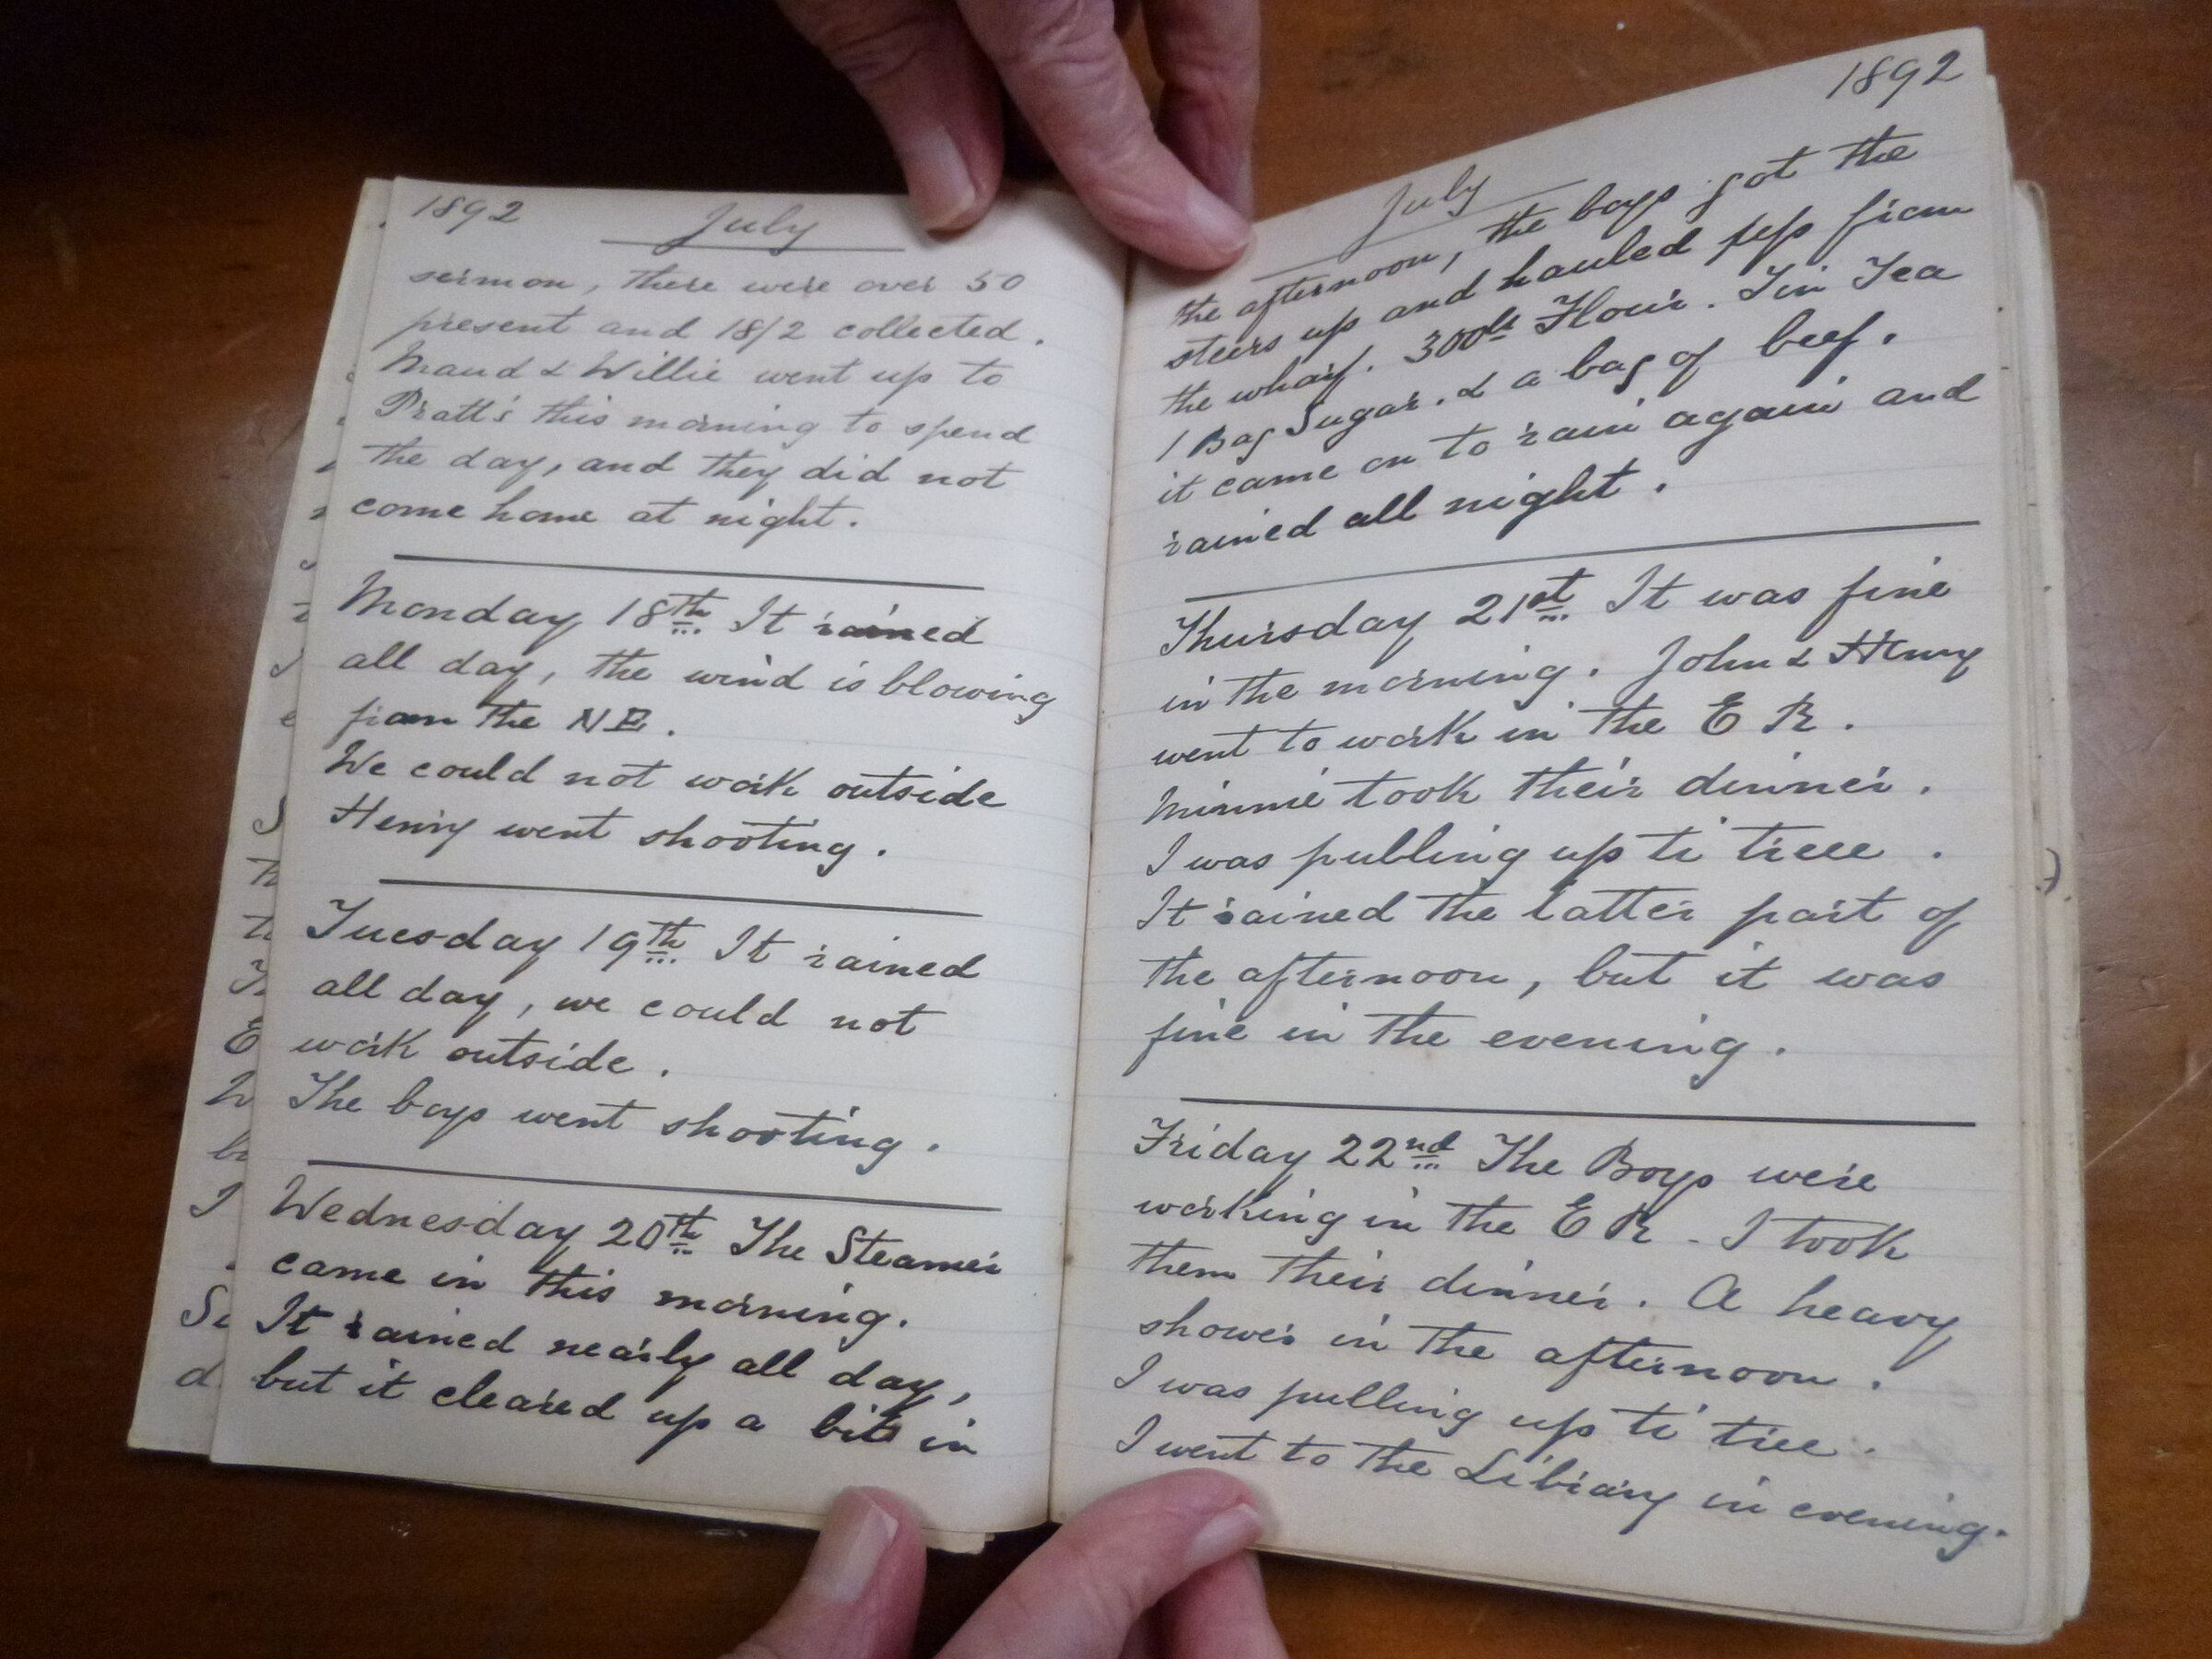 1892 July
sermon, there were over 50
present and 18/2 collected.
Maud & Willie went up to
Pratt's this morning to spend
the day, and they did not
come home at night.
Monday 18th It rained
all day, the wind is blowing
from the NE.
We could not work outside
Henry went shooting.
Tuesday 19th It rained
all day, we could not
work outside.
The boys went shooting.
Wednesday 20th The Steamer
came in this morning.
It rained nearly all day,
but it cleared up a bit in
July 1892
the afternoon, the boys got the
steers up and hauled up from
the wharf. 300lb Flour. Tin Tea
1 Bag Sugar. & a bag of beef.
it came on to rain again and
rained all night.
Thursday 21st It was fine
in the morning. John & Henry
went to work in the E R.
Minnie took their dinner.
I was pulling up ti tree.
It rained the latter part of
the afternoon, but it was
fine in the evening.
Friday 22nd The Boys were
working in the E R - I took
them their dinner. A heavy
shower in the afternoon.
I was pulling up ti tree.
I went to the Library in evening.